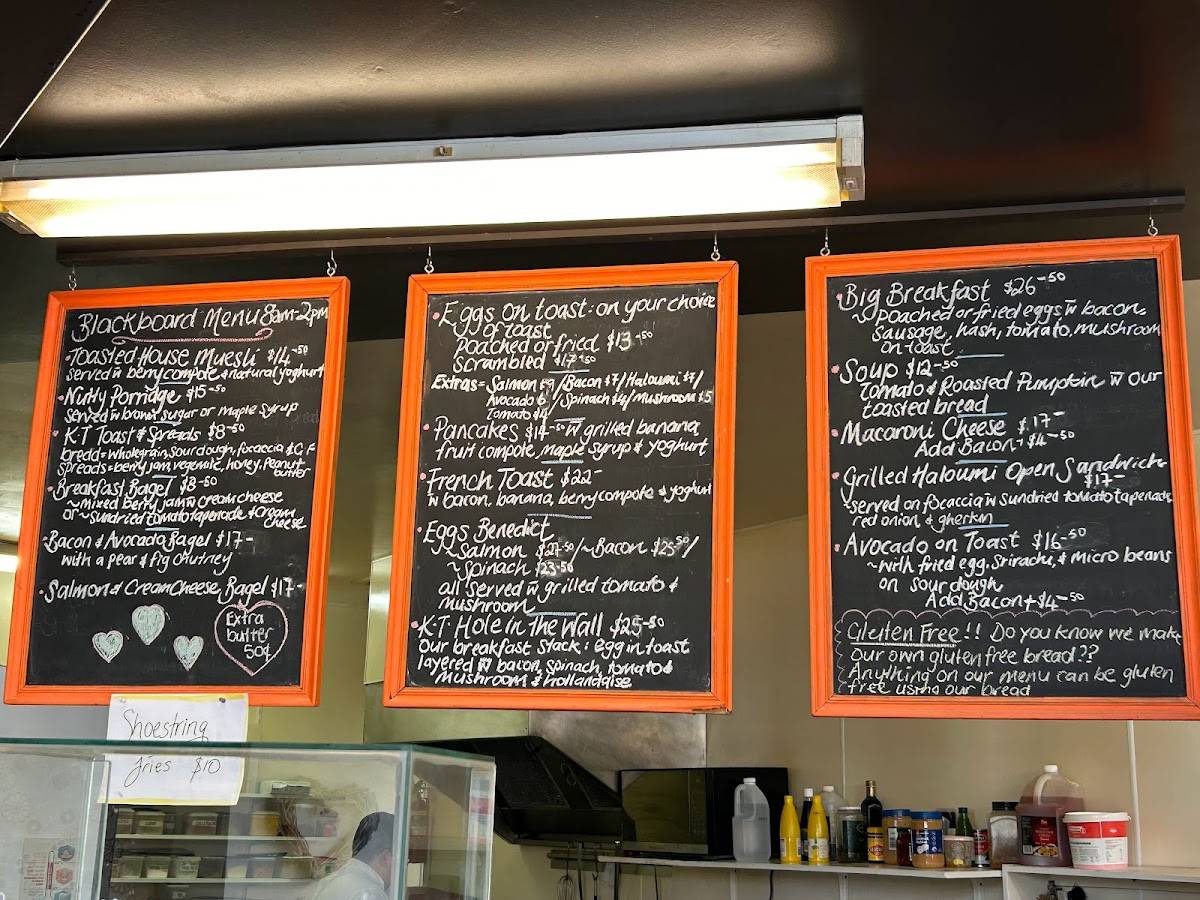 Blackboard Menu 8am-2pm
• Toasted House Muesli $14-50
served w̄ berry compote & natural yoghurt
• Nutty Porridge $15-50
served w̄ brown sugar or maple syrup
• K.T Toast & Spreads $8-50
bread = wholegrain, sourdough, focaccia & G.F
spreads = berry jam, vegemite, honey, peanut butter
• Breakfast Bagel $8-50
~ mixed berry jam w̄ cream cheese
or ~ sundried tomato tapenade & cream cheese
• Bacon & Avocado Bagel $17-
with a pear & fig chutney
• Salmon & Cream Cheese Bagel $17-
Extra
butter
50¢
Shoestring
Fries $10
• Eggs on toast: on your choice
of toast
poached or fried $13-50
Scrambled $17-50
Extras = Salmon $9/Bacon $7/Haloumi $7/
Avocado 6/Spinach $4/Mushroom $5
Tomato $4/
• Pancakes $14-50 w̄ grilled banana,
fruit compote, maple syrup & yoghurt
• French Toast $22-
w̄ bacon, banana, berry compote & yoghurt
• Eggs Benedict
~Salmon $27-50/~Bacon $25-50/
~Spinach $23-50
all served w̄ grilled tomato &
mushroom
• K.T Hole in the Wall $25-50
Our breakfast stack: egg in toast
layered w̄ bacon, spinach, tomato &
mushroom & Hollandaise
• Big Breakfast $26-50
~ poached or fried eggs w̄ bacon,
sausage, hash, tomato, mushroom
on toast.
• Soup $12-50
Tomato & Roasted Pumpkin w̄ our
toasted bread
• Macaroni Cheese $17-
Add Bacon + $4-50
• Grilled Haloumi Open Sandwich
$17-
~served on focaccia w̄ sundried tomato tapenade
red onion, & gherkin
• Avocado on Toast $16-50
~with fried egg, Sriracha, & micro beans
on sourdough
Add Bacon + $4-50
Gluten Free!! Do you know we make
our own gluten free bread??
Anything on our menu can be gluten
free using our bread